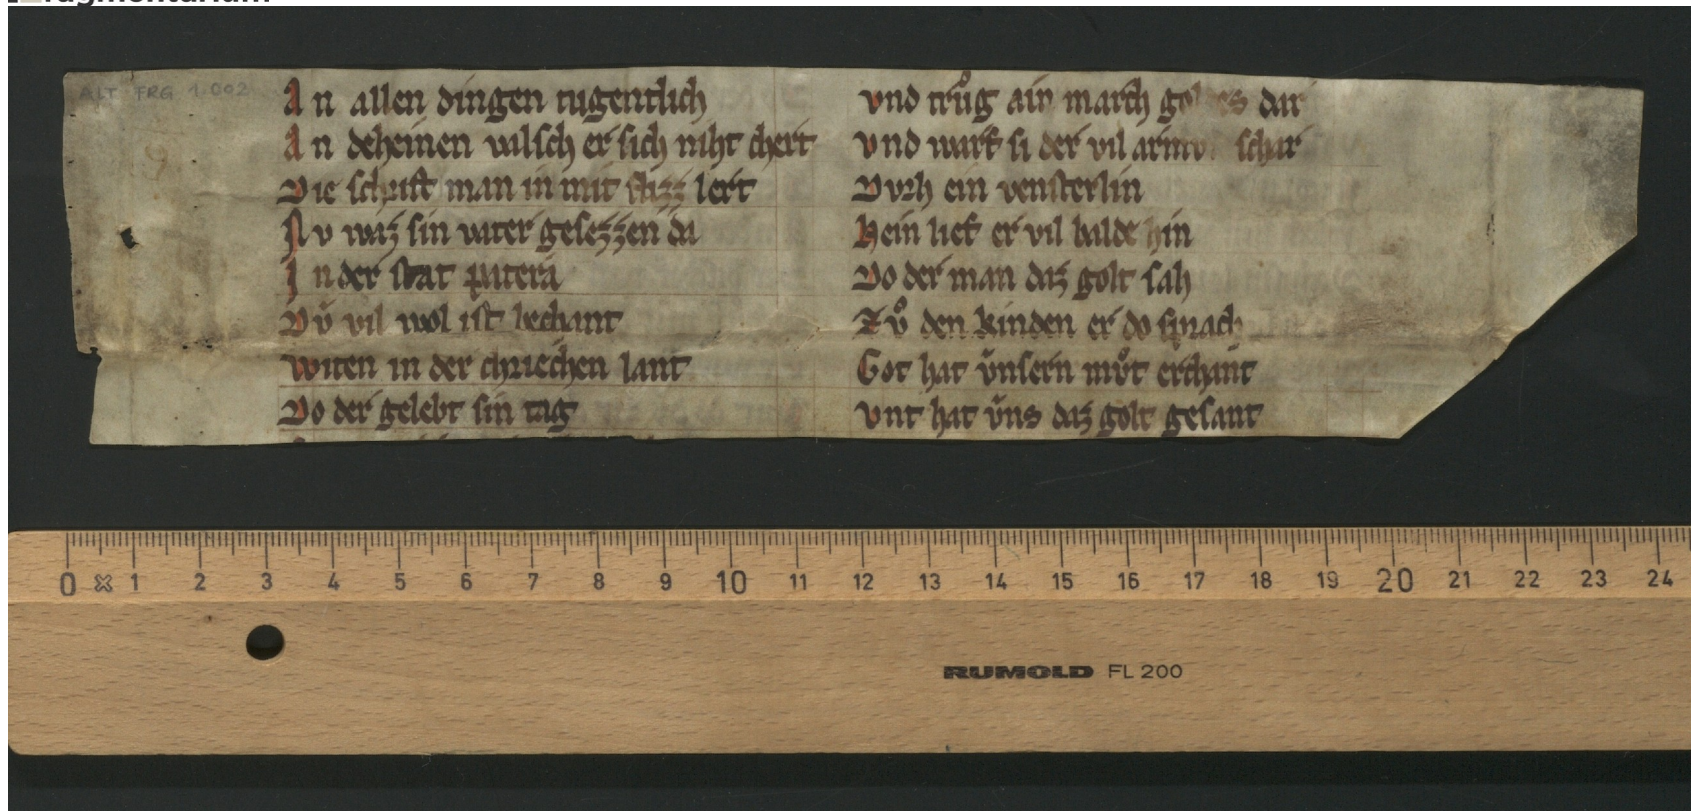 ALT FRG 1.002
An allen dingen tugentlich
An deheinen valsch er sich niht chert
Die schrift man in mit flizz lert
Nv waz sin vater gesezzen da
In der stat patera
Dv̆ vil wol ist bechant
Witen in der chriechen lant
Do der gelebt sin tag
vnd trůg ain march goldes dar
vnd warf si der vil schar
Dvrh ein vensterlin
Hein lief er vil balde hin
Do der man daz golt sah
Zů den kinden er do sprach
Got hat v̆nsern mv̊t erchant
vnt hat v̆ns daz golt gesant
0 1 2 3 4 5 6 7 8 9 10 11 12 13 14 15 16 17 18 19 20 21 22 23 24
RUMOLD FL 200